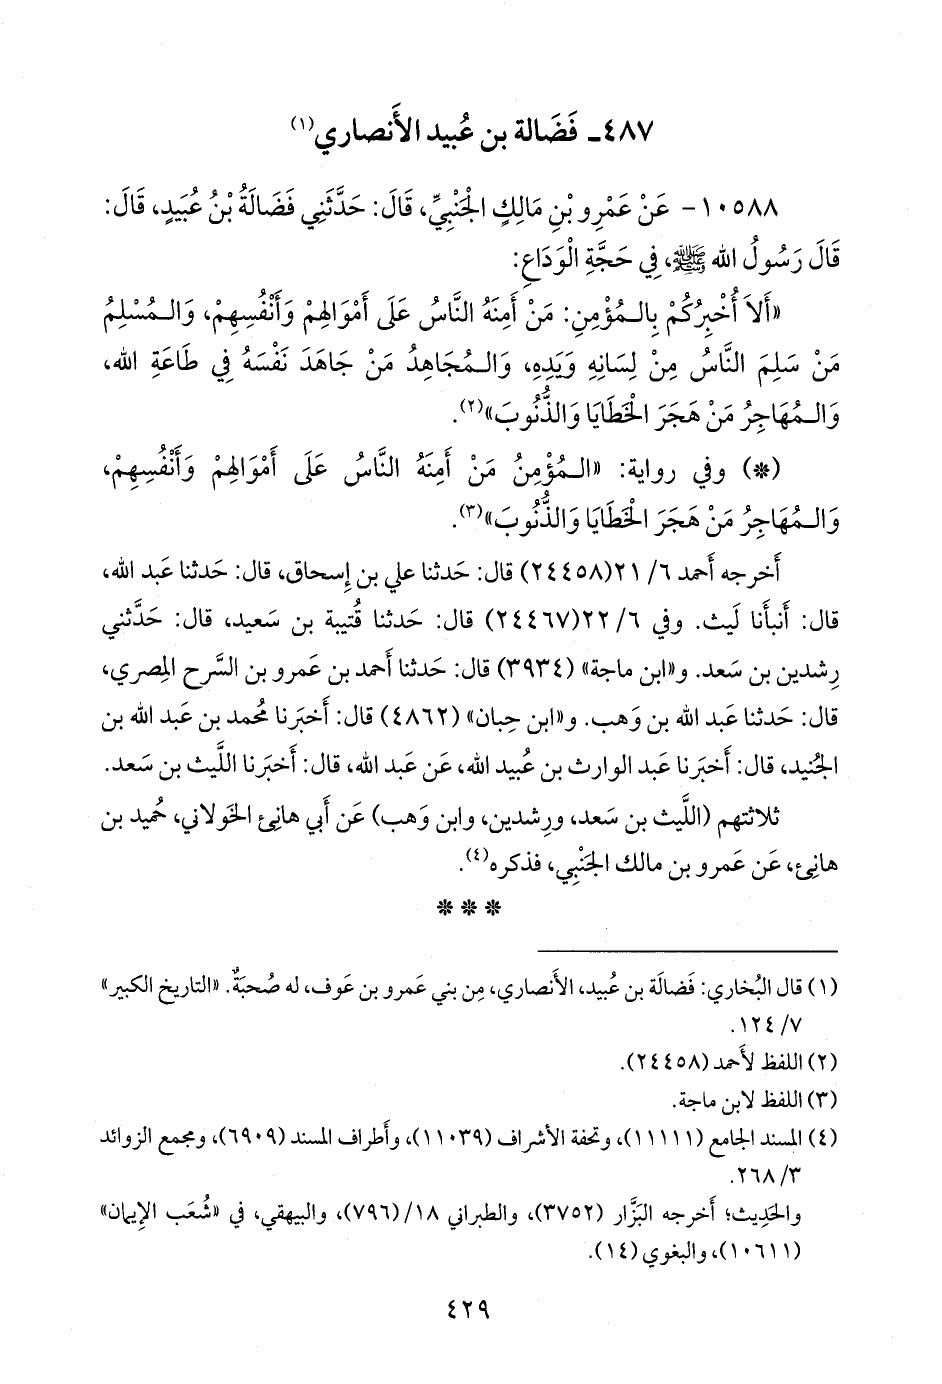 ٤٨٧ـ فَضَالة بن عُبيد الأَنصاري(١)
١٠٥٨٨ - عَنْ عَمْرِو بْنِ مَالِكٍ الْجَنْبِيِّ، قَالَ: حَدَّثَنِي فَضَالَةُ بْنُ عُبَيدٍ، قَالَ:
قَالَ رَسُولُ الله ﷺ، فِي حَجَّةِ الْوَدَاعِ:
«أَلاَ أُخْبِرُكُمْ بِالـمُؤْمِنِ: مَنْ أَمِنَهُ النَّاسُ عَلَى أَمْوَالِهِمْ وَأَنْفُسِهِمْ، وَالـمُسْلِمُ
مَنْ سَلِمَ النَّاسُ مِنْ لِسَانِهِ وَيَدِهِ، وَالـمُجَاهِدُ مَنْ جَاهَدَ نَفْسَهُ فِي طَاعَةِ الله،
وَالـمُهَاجِرُ مَنْ هَجَرَ الْخَطَايَا وَالذُّنُوبَ»(٢).
(*) وفي رواية: «الـمُؤْمِنُ مَنْ أَمِنَهُ النَّاسُ عَلَى أَمْوَالِهِمْ وَأَنْفُسِهِمْ،
وَالـمُهَاجِرُ مَنْ هَجَرَ الْخَطَايَا وَالذُّنُوبَ»(٣).
أَخرجه أَحمد ٦/ ٢١(٢٤٤٥٨) قال: حَدثنا علي بن إِسحاق، قال: حَدثنا عَبد الله،
قال: أَنبأَنا لَيث. وفي ٦/ ٢٢(٢٤٤٦٧) قال: حَدثنا قُتيبة بن سَعيد، قال: حَدَّثني
رِشدين بن سَعد. و«ابن ماجة» (٣٩٣٤) قال: حَدثنا أَحمد بن عَمرو بن السَّرح المِصري،
قال: حَدثنا عَبد الله بن وَهب. و«ابن حِبان» (٤٨٦٢) قال: أَخبَرنا مُحمد بن عَبد الله بن
الجُنيد، قال: أَخبَرنا عَبد الوارث بن عُبيد الله، عَن عَبد الله، قال: أَخبَرنا اللَّيث بن سَعد.
ثلاثتهم (اللَّيث بن سَعد، ورِشدين، وابن وَهب) عَن أَبي هانِئ الخَولاني، حُميد بن
هانِئ، عَن عَمرو بن مالك الجَنْبي، فذكره(٤).
* * *
(١) قال البُخاري: فَضالَة بن عُبيد، الأَنصاري، مِن بني عَمرو بن عَوف، له صُحبَةٌ. «التاريخ الكبير»
٧/ ١٢٤.
(٢) اللفظ لأَحمد (٢٤٤٥٨).
(٣) اللفظ لابن ماجة.
(٤) المسند الجامع (١١١١١)، وتحفة الأشراف (١١٠٣٩)، وأَطراف المسند (٦٩٠٩)، ومجمع الزوائد
٣/ ٢٦٨.
والحَدِيث؛ أَخرجه البَزَّار (٣٧٥٢)، والطبراني ١٨/(٧٩٦)، والبيهقي، في «شُعَب الإِيمان»
(١٠٦١١)، والبغوي (١٤).
٤٢٩